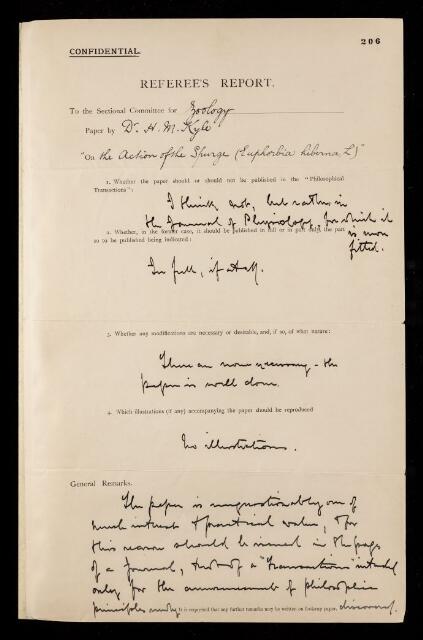 206
CONFIDENTIAL.
REFEREE'S REPORT.
To the Sectional Committee for Zoology
Paper by Dr. H. M. Kyle
"On the Action of the Spurge (Euphorbia hiberna, L.)"
1. Whether the paper should or should not be published in the "Philosophical
Transactions":
I think not, but rather in
the Journal of Physiology, for which it
is more
fitted.
2. Whether, in the former case, it should be published in full or in part only, the part
so to be published being indicated:
In full, if at all.
3. Whether any modifications are necessary or desirable, and, if so, of what nature:
There are none necessary – the
paper is well done.
4. Which illustrations (if any) accompanying the paper should be reproduced
No illustrations.
General Remarks.
The paper is unquestionably one of
much interest & practical value, & for
this reason should be issued in the pages
of a Journal, of a "Transactions" intended
only for the announcement of philosophic
principles discovered.
It is requested that any further remarks may be written on foolscap paper.